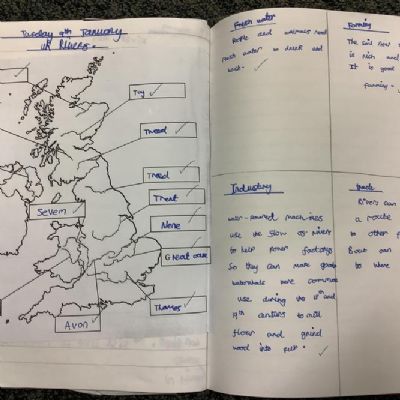 Tuesday 9th January
UK Rivers.
Tay
Tweed
Trent
None
Severn
Great ouse
Thames
Avon
Fresh water
People and animals need
fresh water to drink and
wash.
Farming
The soil
is rich and
It is good
farming.
Industry
water-powered machines
use the flow of river
to help power factorys
So they can make goods
waterwheels were common
use during the 18th and
19th centuries to mill
flour and grind
wood into pulp.
trade
Rivers can
a route
to other
Boat can
to where